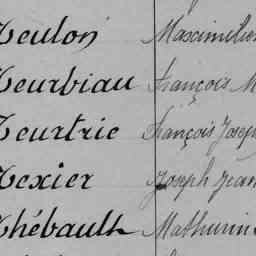 Teulon Maximilie
Teurbiau François M
Teurtrie François Josep
Texier Joseph Jean
Thébault Mathurin